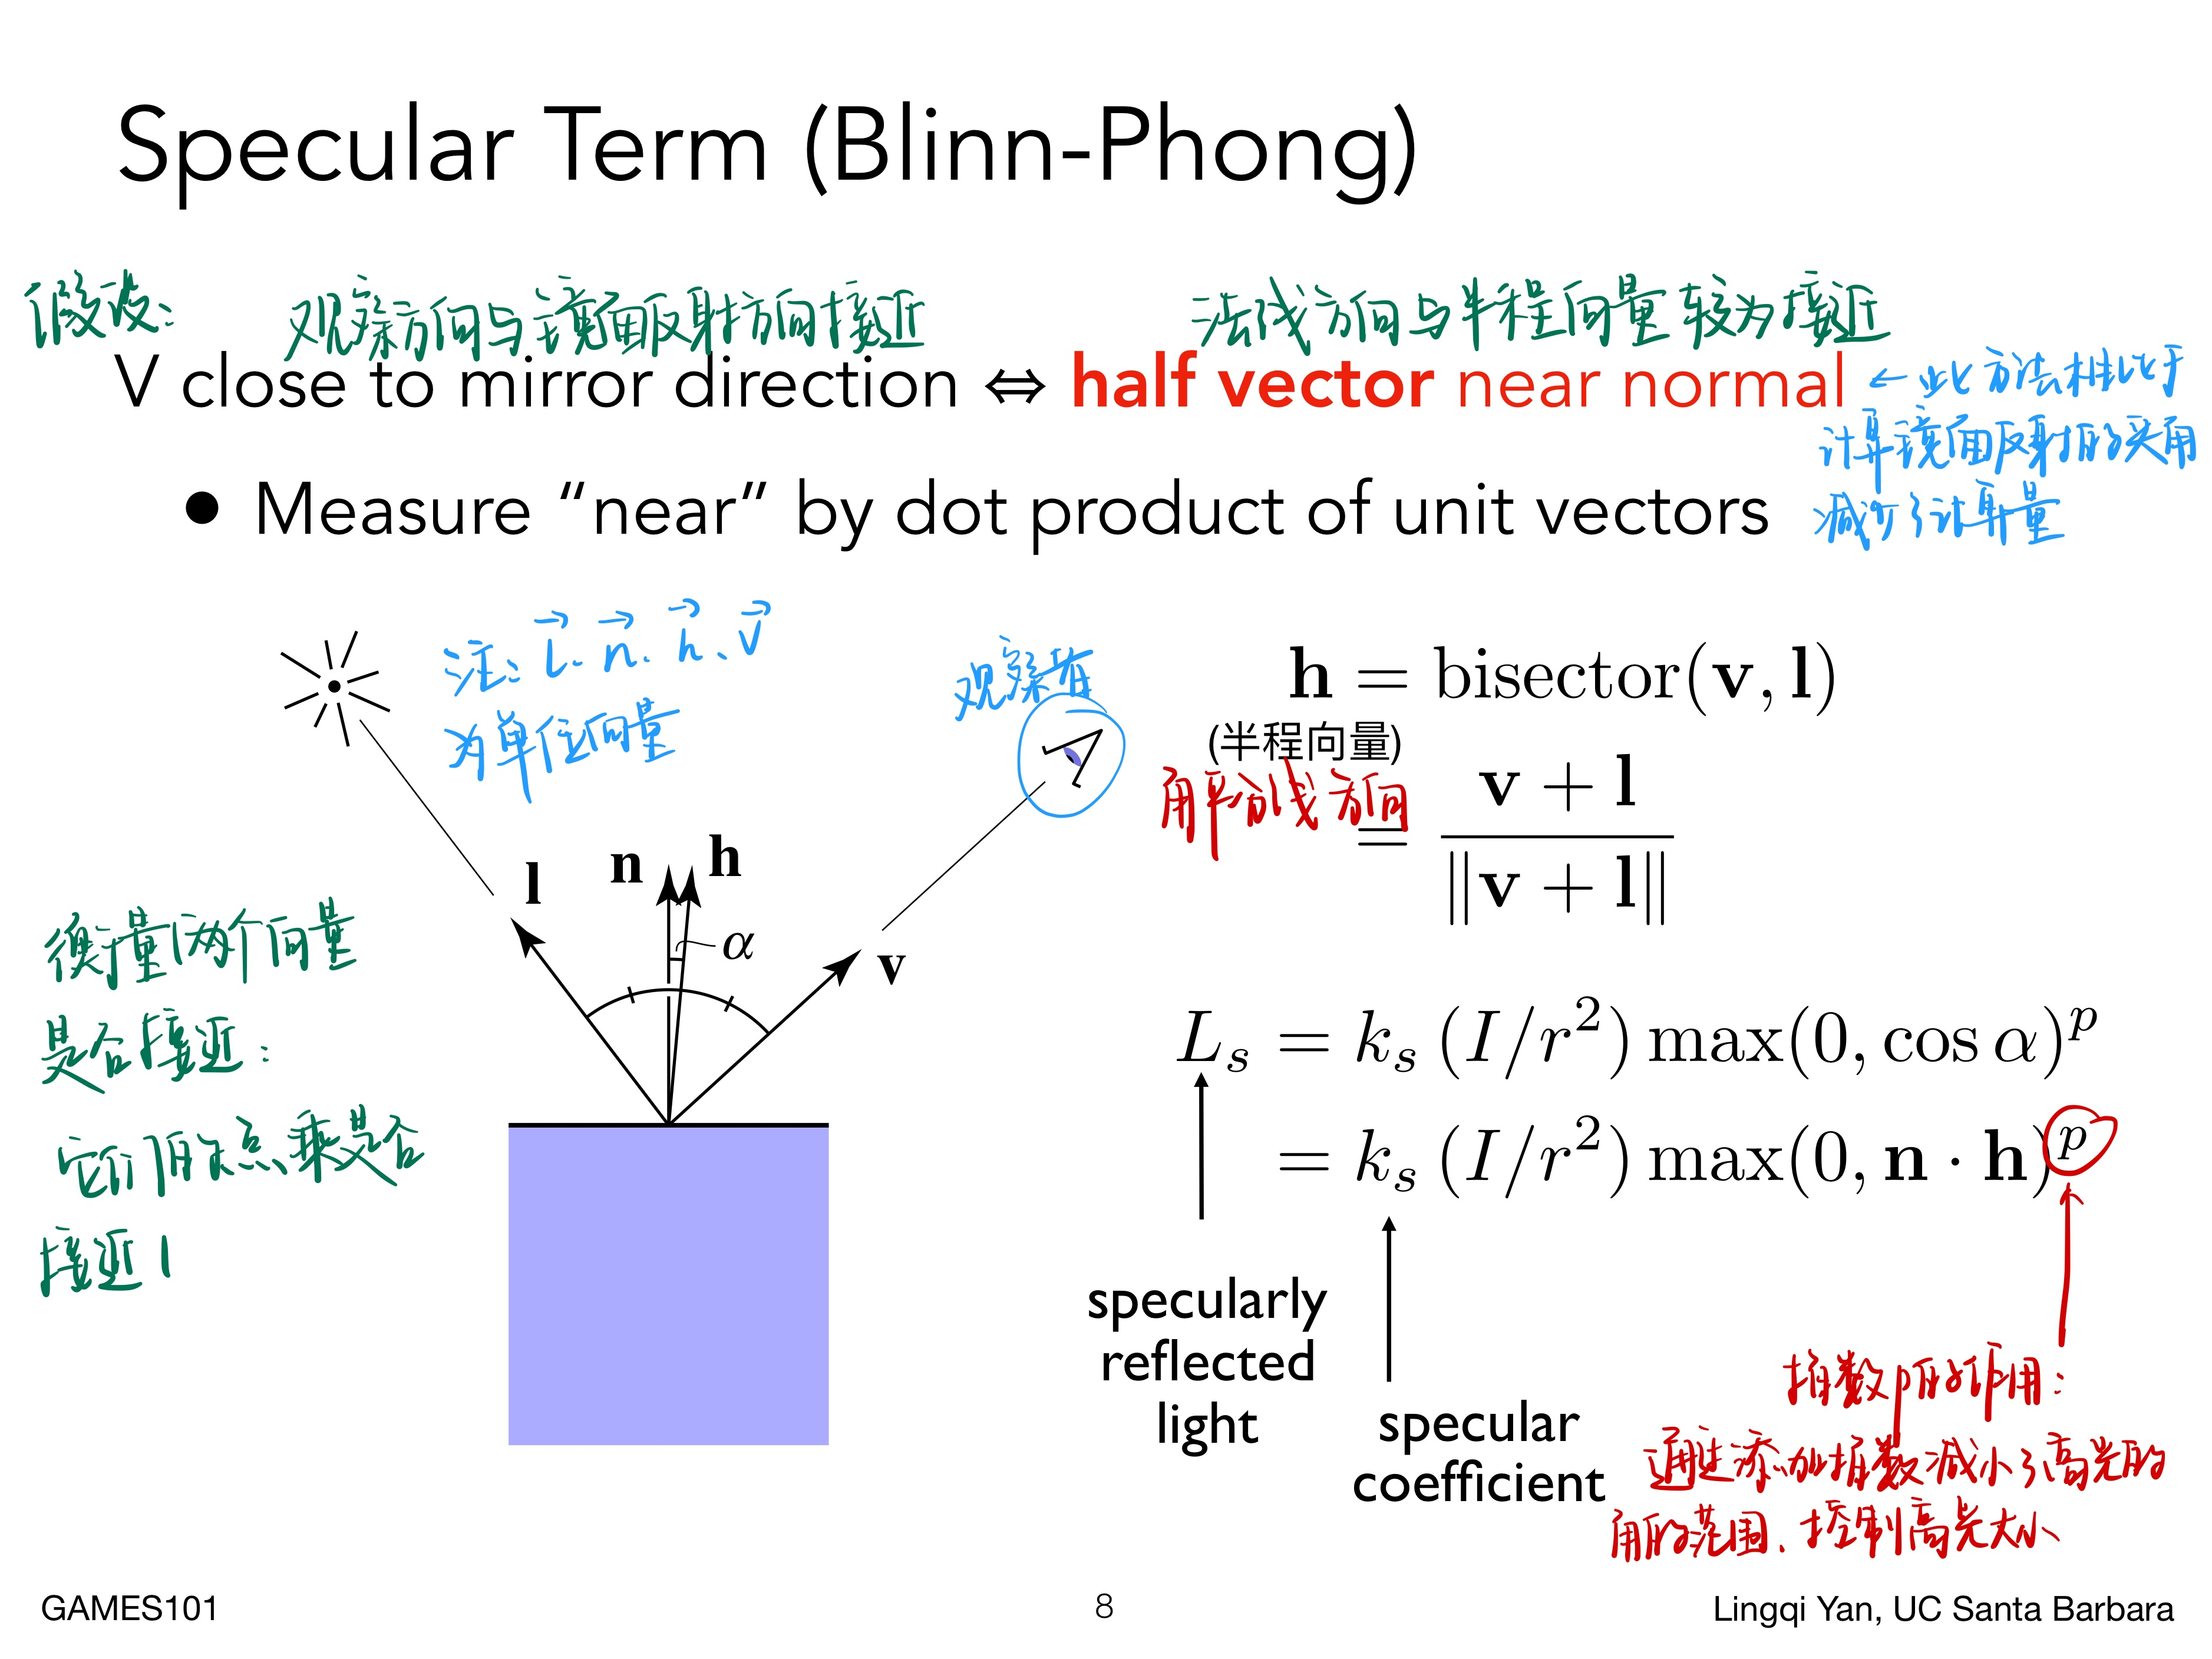 Specular Term (Blinn-Phong)
假设:
观察方向与镜面反射方向接近
法线方向与半程向量较为接近
V close to mirror direction ⇔ half vector near normal
← 此方法相比于
计算镜面反射的夹角
减少了计算量
• Measure “near” by dot product of unit vectors
注: l⃗、n⃗、h⃗、v⃗
为单位向量
观察者
h = bisector(v, l)
(半程向量)
角平分线方向
= (v + l) / ‖v + l‖
l
n
h
α
v
衡量两个向量
是否接近:
它们的点乘是否
接近1
L_s = k_s (I/r²) max(0, cos α)^p
= k_s (I/r²) max(0, n · h)^p
specularly
reflected
light
specular
coefficient
指数p的作用:
通过添加指数减小了高光的
角的范围、控制高光大小
GAMES101
8
Lingqi Yan, UC Santa Barbara